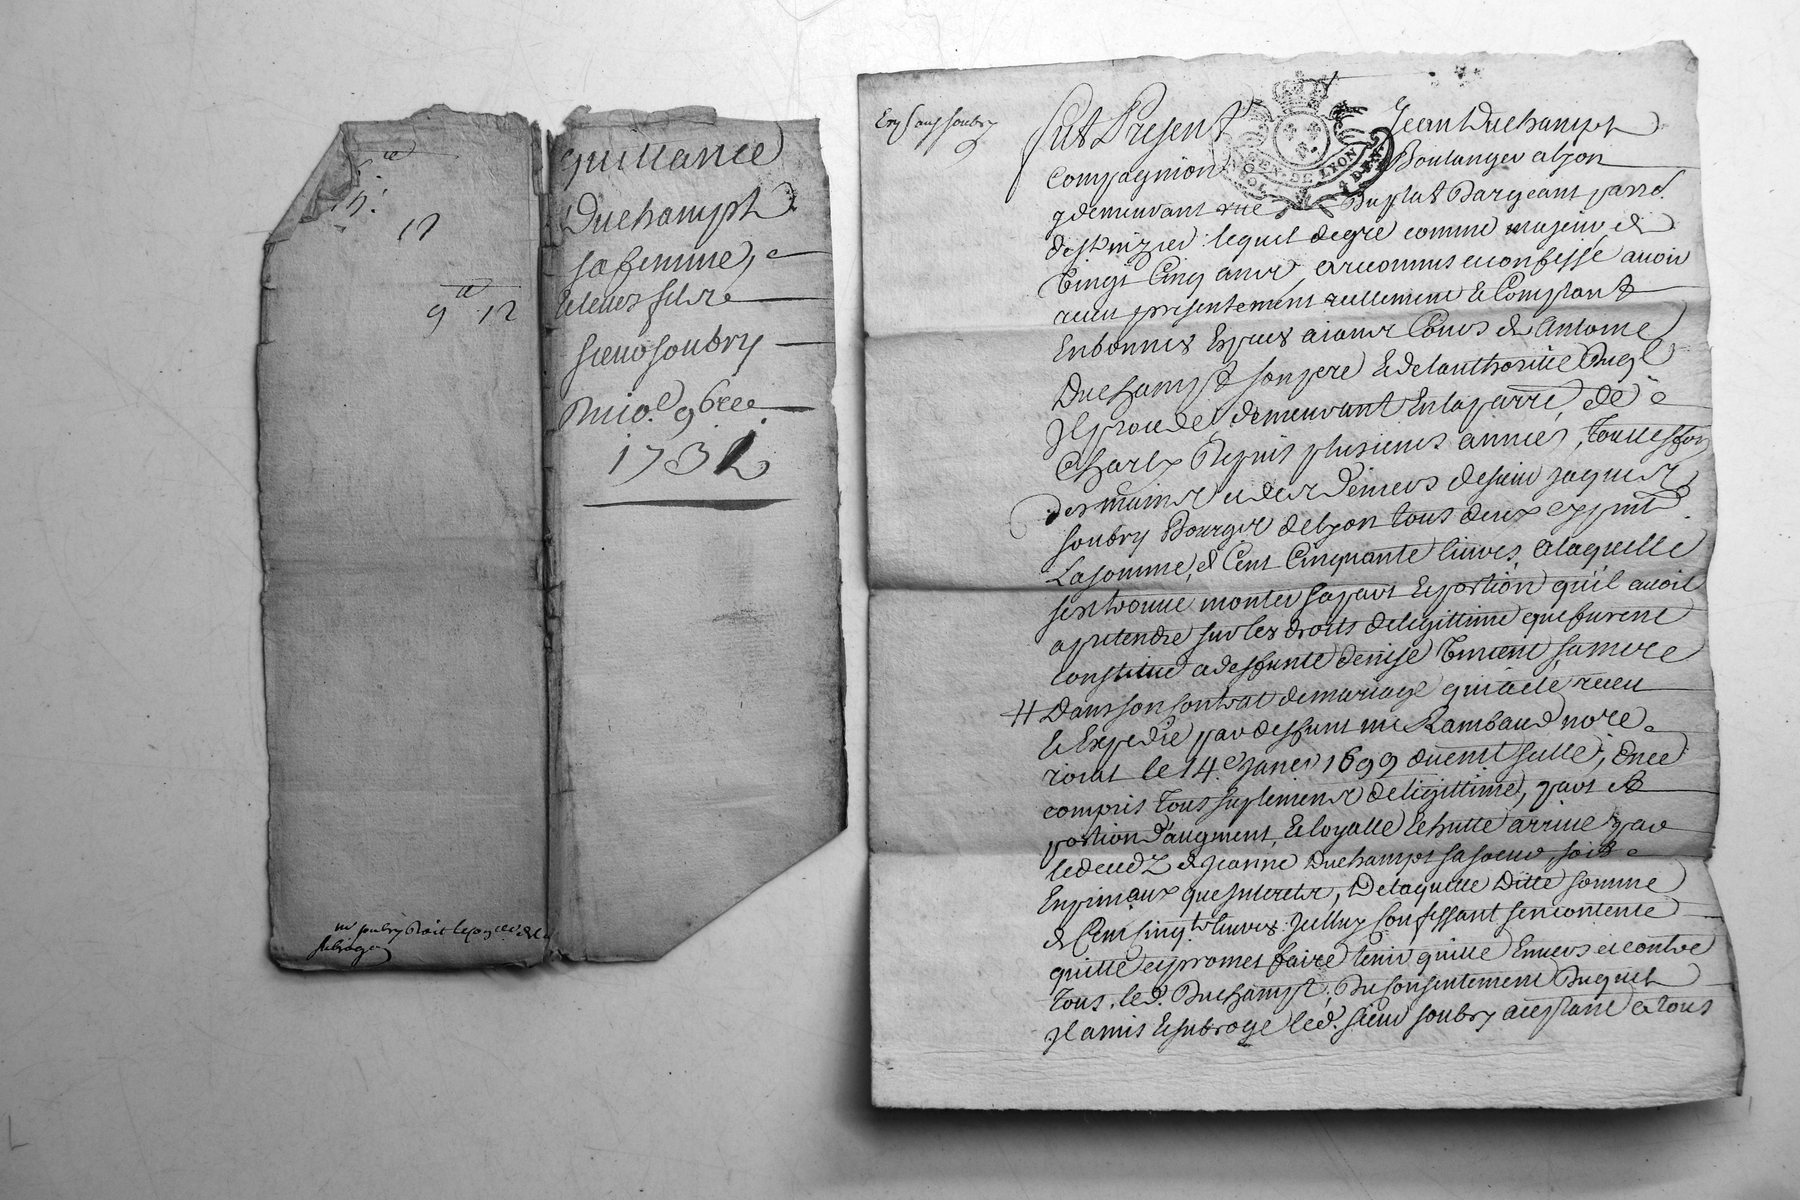 9 12
Quittance
Duchampt
sa femme, e
sieur soubry
Du 10.e 9bre
1732
Fut Present Jean Duchampt
GEN. DE LYON
Compagnion Boulanger a lyon
y demeurant rue Duplat Dargeant parr.
de st nizier lequel de gré comme majeur de
Vingt Cinq ans, a reconnu et confessé avoir
receu presentement reellement et Comptant
En bonnes Especes aiant Cours de Antoine
Duchampt son pere et de lauthorité Duql
Il procede demeurant En la parre de
Charly Depuis plusieurs années, touttesfois
des mains et des deniers de sieur Jaques
soubry Bourgeois de lyon tous deux
La somme de Cent Cinquante livres, a laquelle
sest trouvé monter sa part et portion quil avoit
a pretendre sur les droits de legittime que furent
Constitué a deffunte denise sa mere
Dans son Contrat de mariage qui a eté receu
et Expedié par deffunt me Rambaud no.re
roial le 14.e Janer 1699 Ence
compris tous suplement de legittime, part et
portion d'augment, Et loyalle Echutte arrivé par
le deced de Jeanne Duchampt sa soeur, soit
En principaux que Interets, De laquelle Ditte somme
de Cent livres Confessant sen contente
quitte et promet faire tenir quitte Envers et contre
tous led. Duchampt, Du Consentement Duquel
Il a mis et subrogé led. sieur soubry acceptant a tous